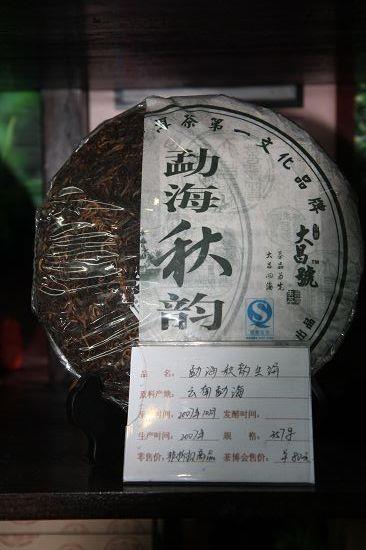 茶第一文化品牌
勐海秋韵
大昌號
TM
茶品为先
大昌四海
出品
品 名: 勐海秋韵生饼
原料产地: 云南勐海
时间: 2007年10月 发酵时间:
生产时间: 2007年 规 格: 357号
零售价: 茶博会售价: